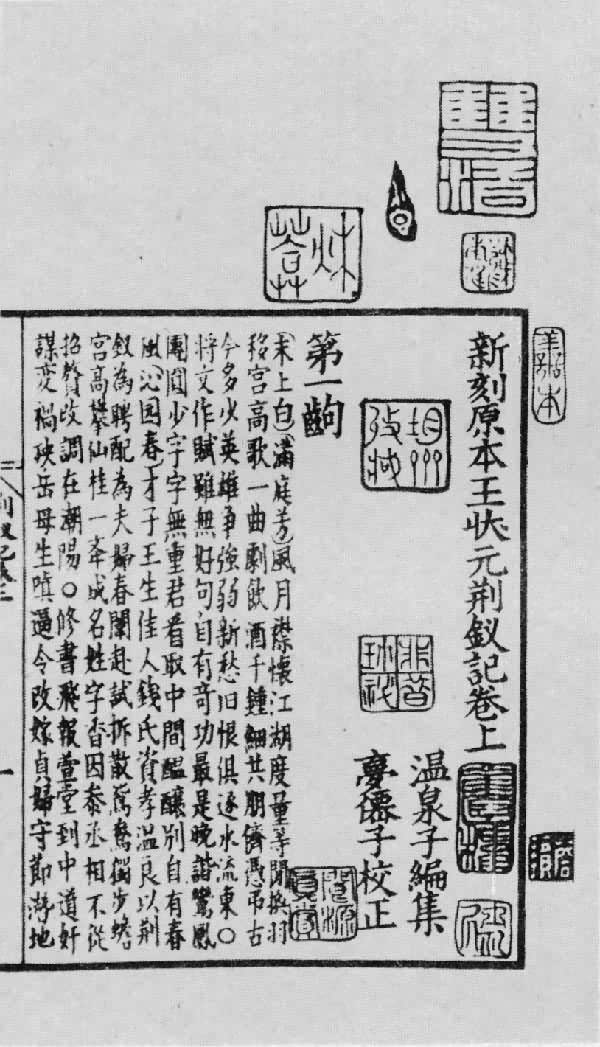 新刻原本王状元荆釵記卷上
温泉子編集
夢僊子校正
第一齣
末上白滿庭芳風月襟懷江湖度量等閒換羽
移宮高歌一曲劇飲酒千鍾細共朋儕憑弔古
今多少英雄爭強弱新愁旧恨俱逐水流東○
將文作賦雖無好句自有奇功最是晚諧鸞鳳
團圓少字字無重君看取中間醞釀別自有春
風沁园春才子王生佳人錢氏資孝温良以荆
釵為聘配為夫婦春闈赴試拆散鴛鴦獨步蟾
宮高攀仙桂一舉成名姓字香因參丞相不從
招贅改調在潮陽○修書飛報萱堂到中道奸
謀变禍殃岳母生嗔逼令改嫁貞婦守節潛地